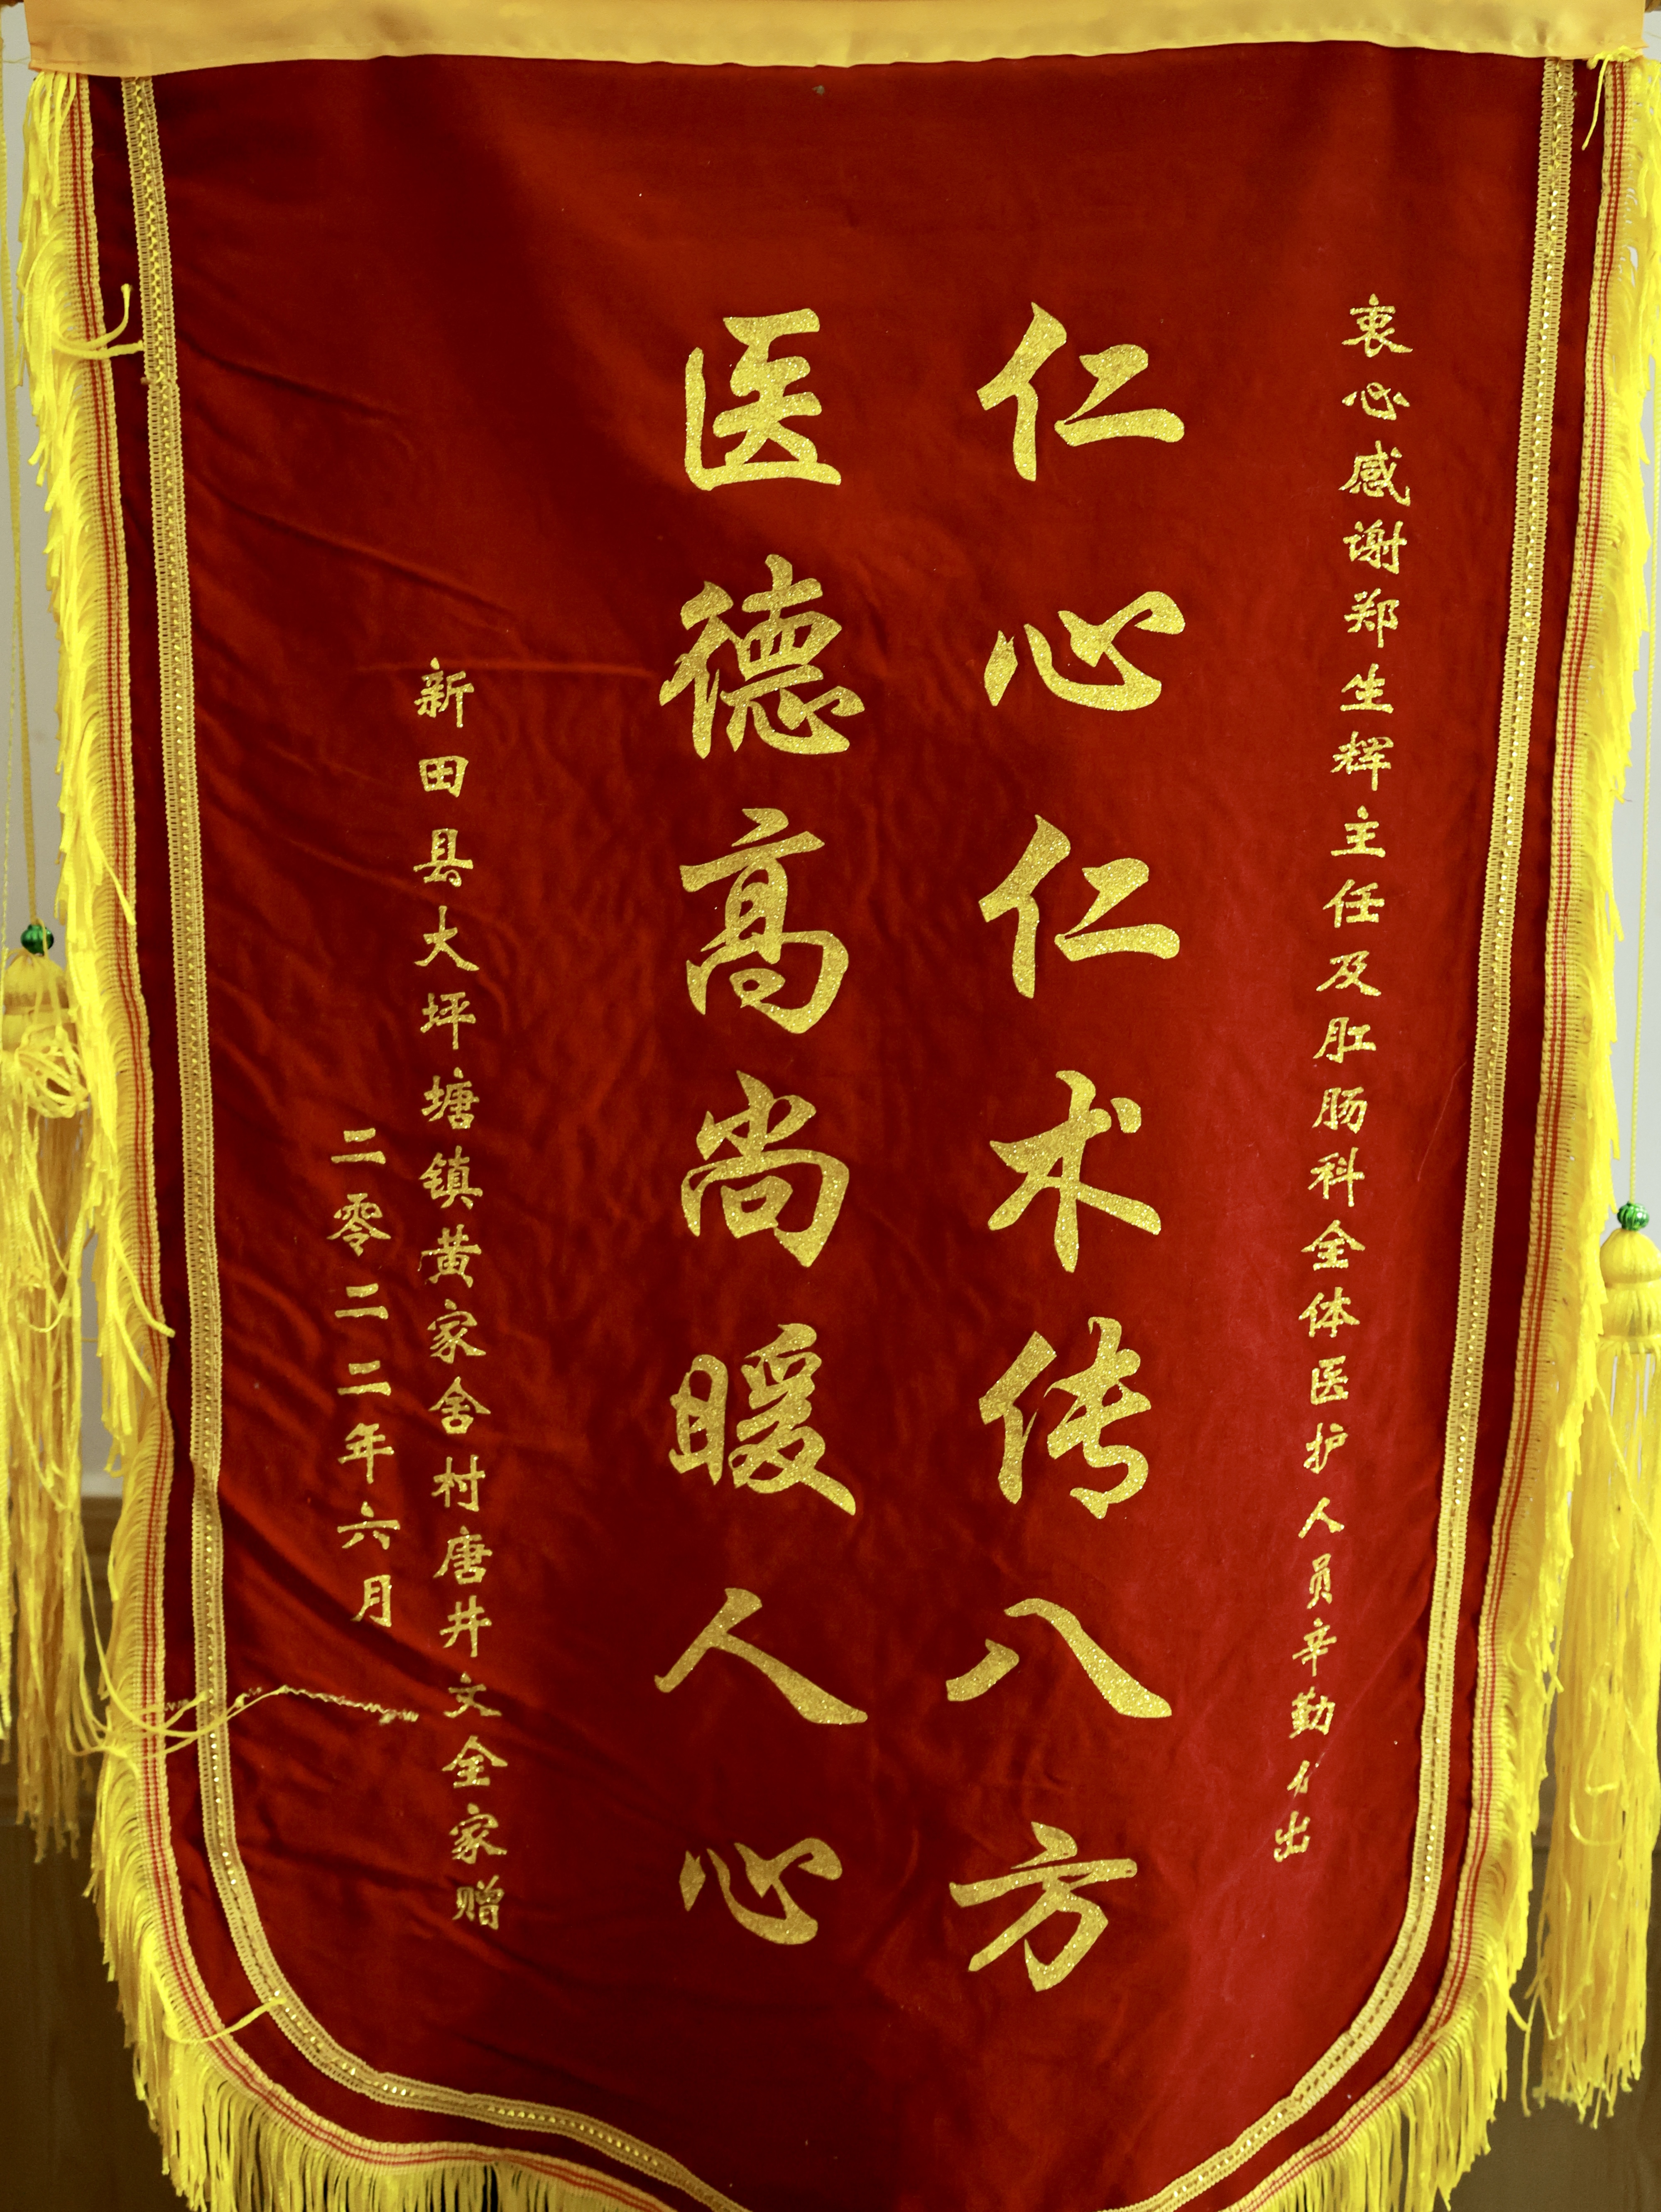 衷心感谢郑生辉主任及肛肠科全体医护人员辛勤付出
仁心仁术传八方
医德高尚暖人心
新田县大坪塘镇黄家舍村唐井文全家赠
二零二二年六月